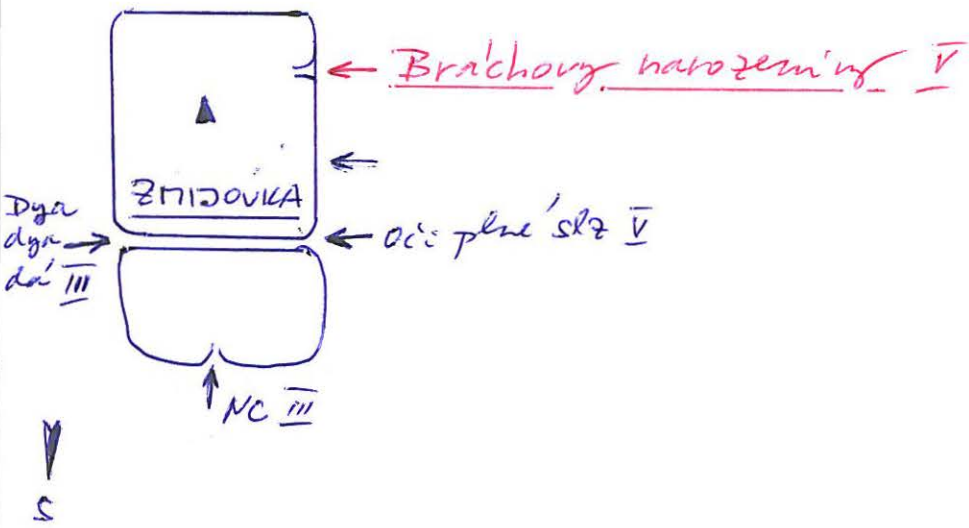 Bráchovy narozeniny V
ZMIJOVKA
Dya
dya
dá III
Oči plné slz V
NC III
S